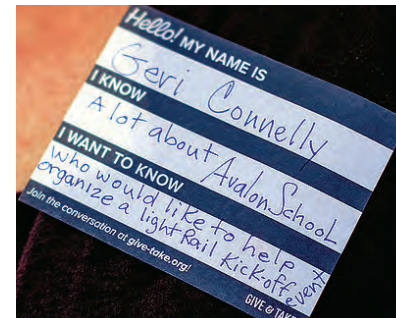 Hello! MY NAME IS
Geri Connelly
I KNOW
A lot about Avalon School
I WANT TO KNOW
who would like to help
organize a light Rail Kick-off event
Join the conversation at give-take.org!
GIVE & TAKE